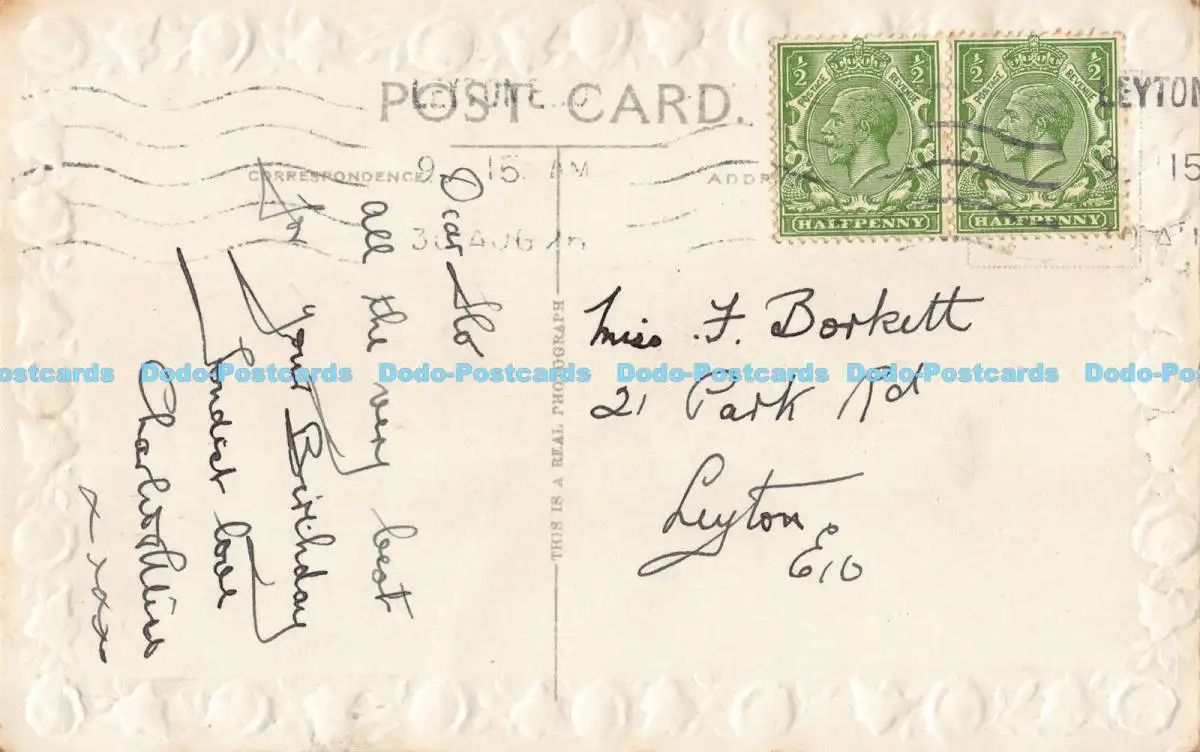 POST CARD.
LEYTON E.
9 15 AM
30 AUG
LEYTON
9 15
CORRESPONDENCE.
ADDR
½ ½
POSTAGE REVENUE
HALFPENNY
½ ½
POSTAGE REVENUE
HALFPENNY
Dear Flo
all the very best
for
your Birthday
Fondest love
x xxx
THIS IS A REAL PHOTOGRAPH
Miss F. Borkett
21 Park Rd
Leyton
E10
Dodo-Postcards Dodo-Postcards Dodo-Postcards Dodo-Postcards Dodo-Postcards Dodo-Postcards